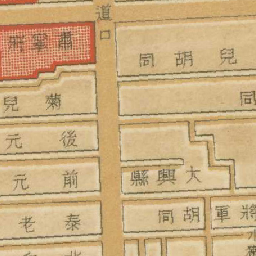 道口
肅寧府
兒胡同
菊兒
同
後元
大興縣
前元
將軍胡同
泰老